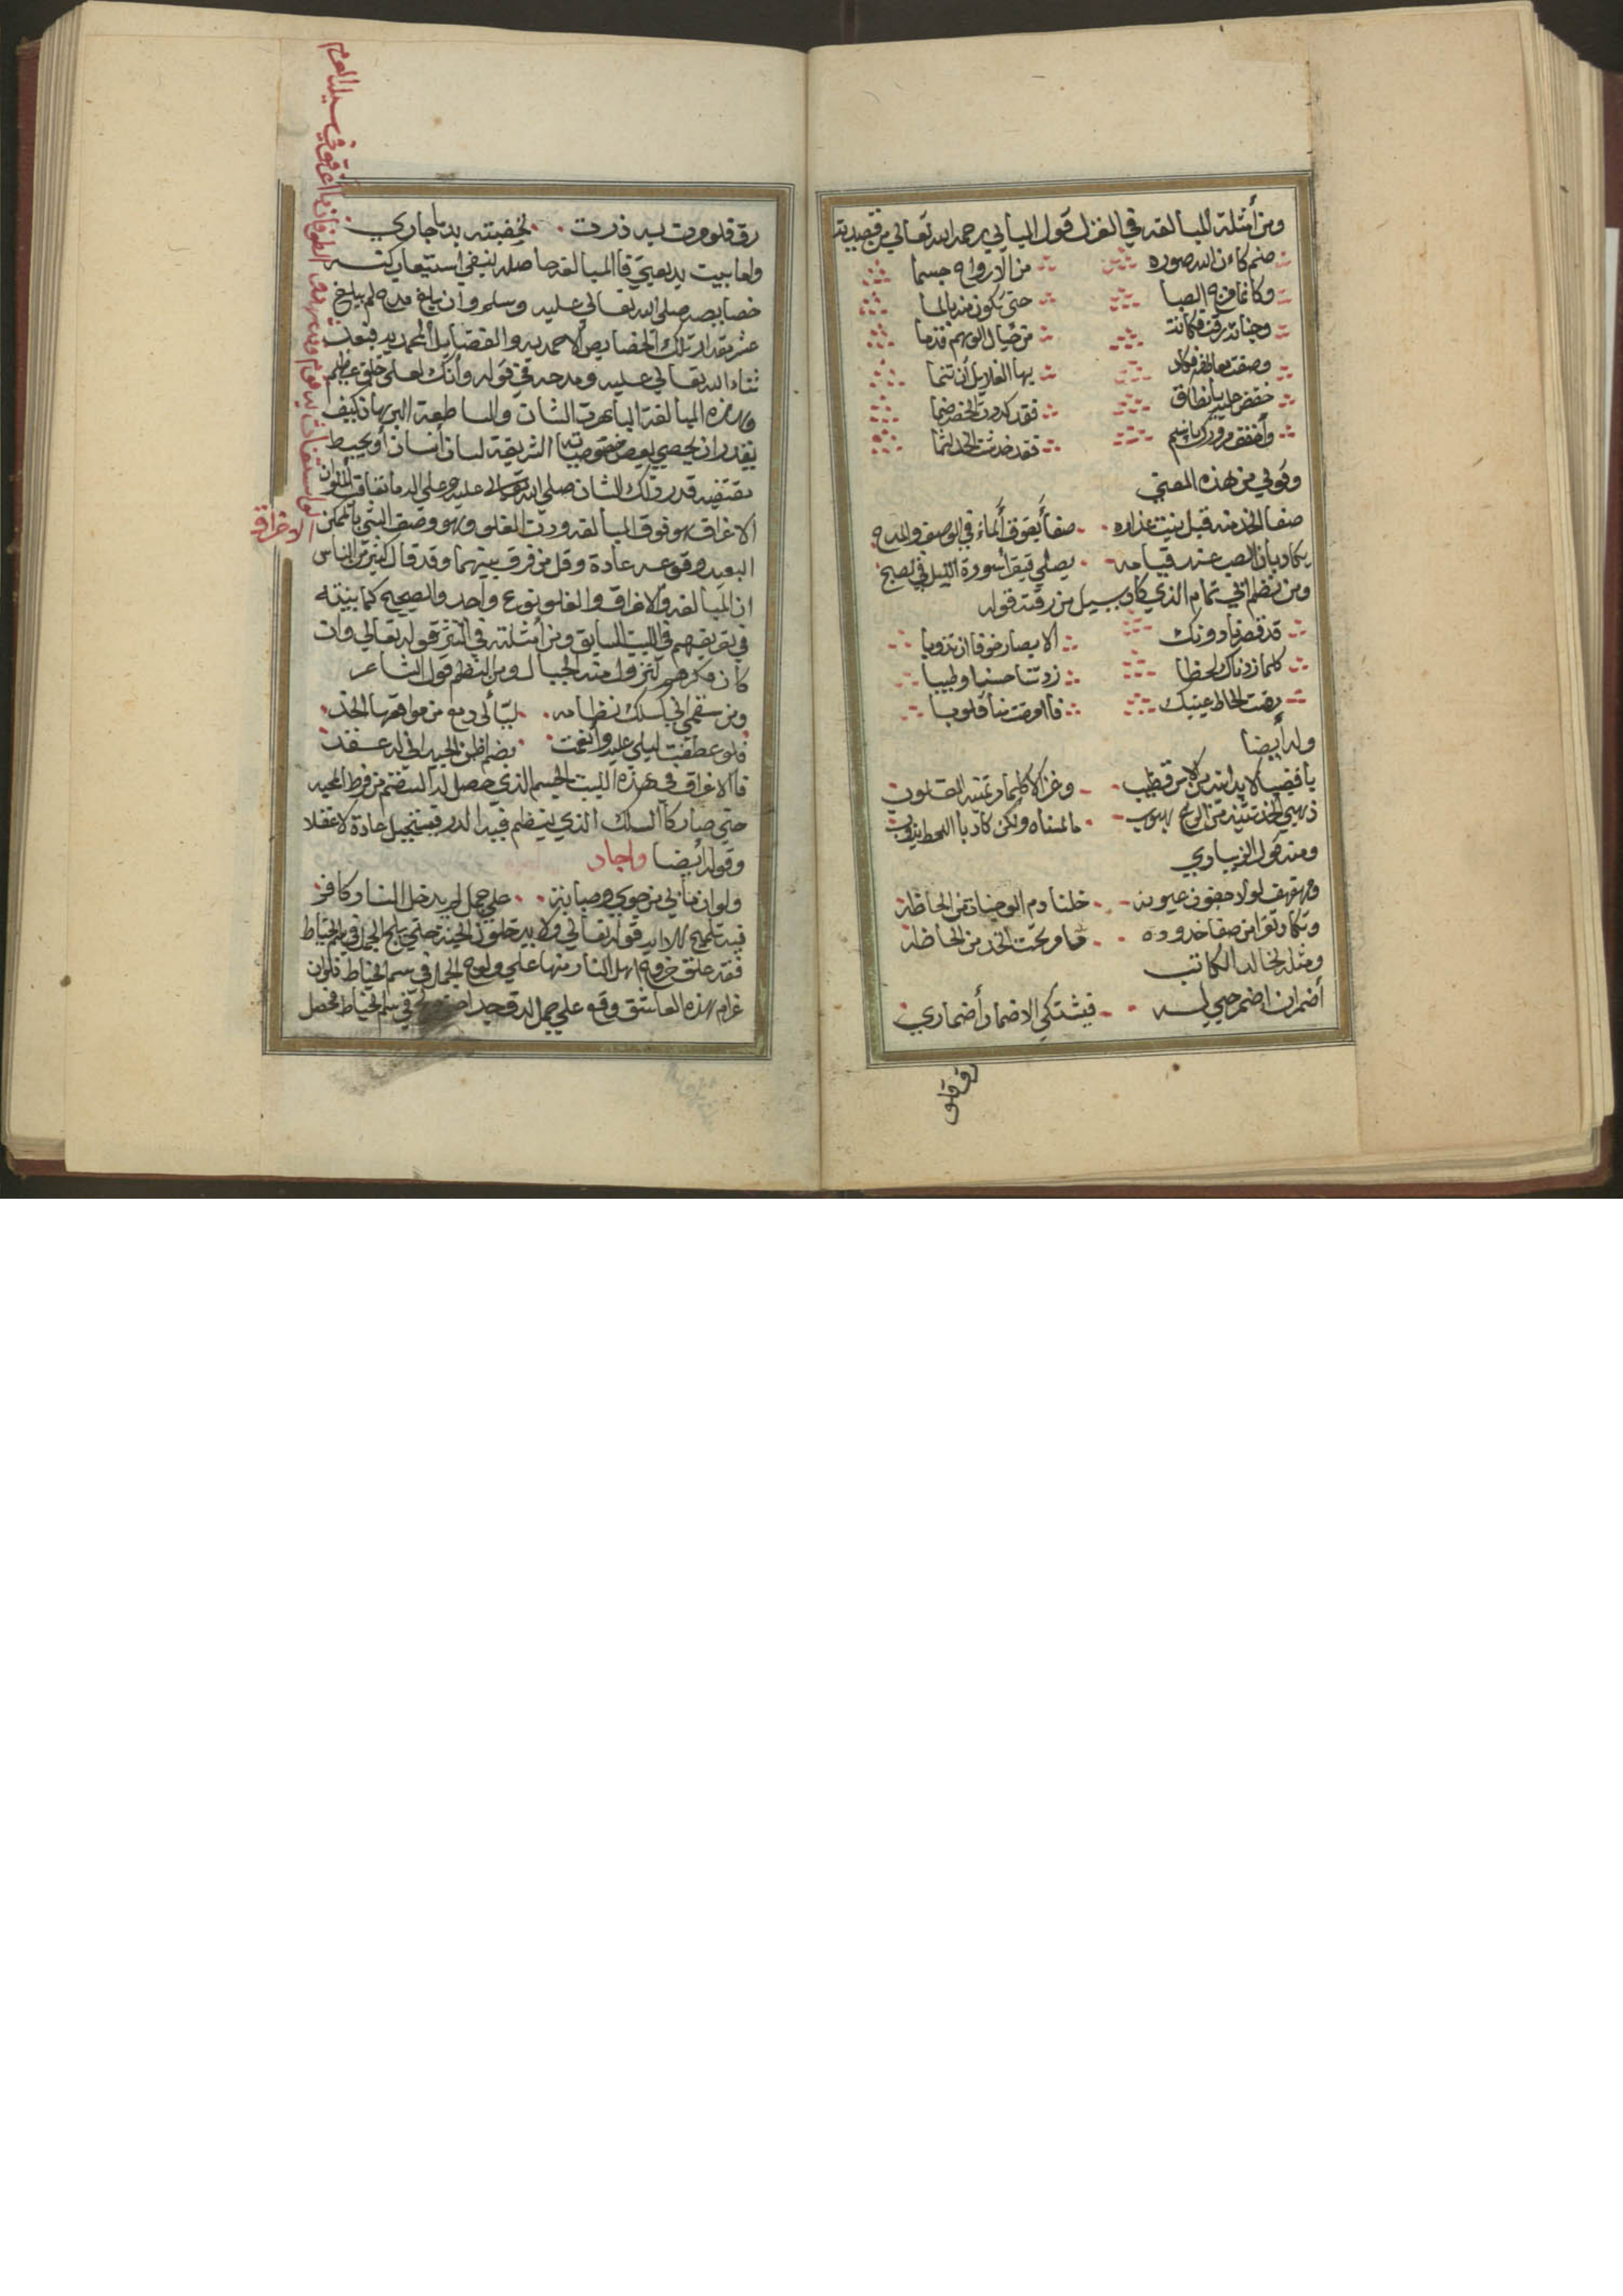 ومن أمثلة المبالغه في الغزل قول البابي رحمه الله تعالي من قصيدته
صنم كاءن الله صوره من الارواح جسما
وكانما مزج الصبا حتى تكون منه بالما
وجناته رقت فكانة من خيال الوهم تدما
وصفت معاطفه فكاد بها الغلايل أن تنما
خفض عليه يا نطاق فقد كددت الخصر ضما
وأخفف مرورك يا نسيم فقد خدشت الخد لثما
وقولي من هذه المعني
صفا الخد منه قبل نبت عذاره صفأ يفوق ألماء في الوصف والمدح
يكاد بان الصب عند قيامه يصلي
ومن نظم ابي تمام الذي كاد يسيل من رقته قوله
قد قصرنا دونك الابصار خوفا ان تذوبا
كلما زدناك لحظا زدتنا حسنا وطيبا
مرضت الحاظ عينيك فاامرضت منا قلوبا
وله أيضا
يا قضيبا لا يدانيه من الانس قضيب وغزالا كلما مر تمنته القلوب
ذهبي الخد تثنيه من الريح هبوب ما لمسناه ولكن كاد باالحظ يذوب
ومنه قول الزيباري
ومهفهف لولا جفون عيونه خلنا دم الوجنات من الحاظه
وتكاد تقرا من صفا خدوده ما مر تحت الخد من الفاظه
ومثله لخالد الكاتب
أضمر ان اضمر حبي له فيشتكي الاضمار أضماري
رق فلو
رق فلو مرت به ذرت لخضبته بدم جاري
واما بيت بديعيتي فاالمبالغه حاصله بنفي استيعاب كتـ
خصايصه صلي الله تعالي عليه وسلم وان بلغ مدحه لم يبلغ
عشر مقدار تلك الخصايص الاحمديه والفضايل المحمديه فبعد
ثناء الله تعالي عليه ومدحه في قوله وأنك لعلى خلق عظيم
وهذه المبالغة الباهرت الشان والساطعة البرهان كيف
يقدر ان يحصي بعض خصوصياتها الشريفة لسان أنسان أو يحيط
بمقتضيه قدر ذلك الشان صلي الله تعالى عليه وعلي اله ما تعاقب الملوان
الاغراق هو فوق المبالغه ودون الغلو وهو وصف الشئ باالممكن
البعيد وقوعه عادة وقل من فرق بينهما وقد قال كثير من الناس
ان المبالغه والاغراق والغلو نوع واحد والصحيح كما بينته
في تعريفهم في البيت السابق ومن أمثلته في النثر قوله تعالي وان
كان مكرهم لتزول منه الجبال ومن النظم قول الشاعر
ومن سقمي اني كسلك نظامه لبتألى دمع من مواقعها الخد
فلو عطفت ليلي عليه وأنعمت بضم لظن الجيد اني له عقد
فاالاغراق في هذه البيت الجسم الذي حصل له السقم من فرط المحبه
حتي صار كاالسلك الذي ينظم فيه الدر فيستحيل عادة لا عقلا
وقوله أيضا واجاد
ولو ان ما بي من جوي وصبابة علي جمل لم يدخل النار كافر
فيه تلميح الا الي قوله تعالي ولا يدخلون الجنة حتي يلج الجمل في سم الخياط
فقد علق خروج اهل النار منها علي ولوج الجمل في سم الخياط فلو ان
غرام هذه العاشق وقع علي جمل لدق جدا حتي يلج في سم الخياط فحصل
الاغراق